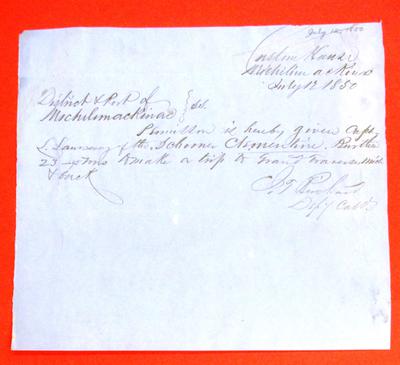 July 12, 1850
Custom House
Michilimackinac
July 12 1850
District & Port of
Michilimackinac } ss.
Permission is hereby given Capt
of the Schooner Clementine, Burthen
23 tons to make a trip to Grand Traverse Mich
& back
Depy Collr